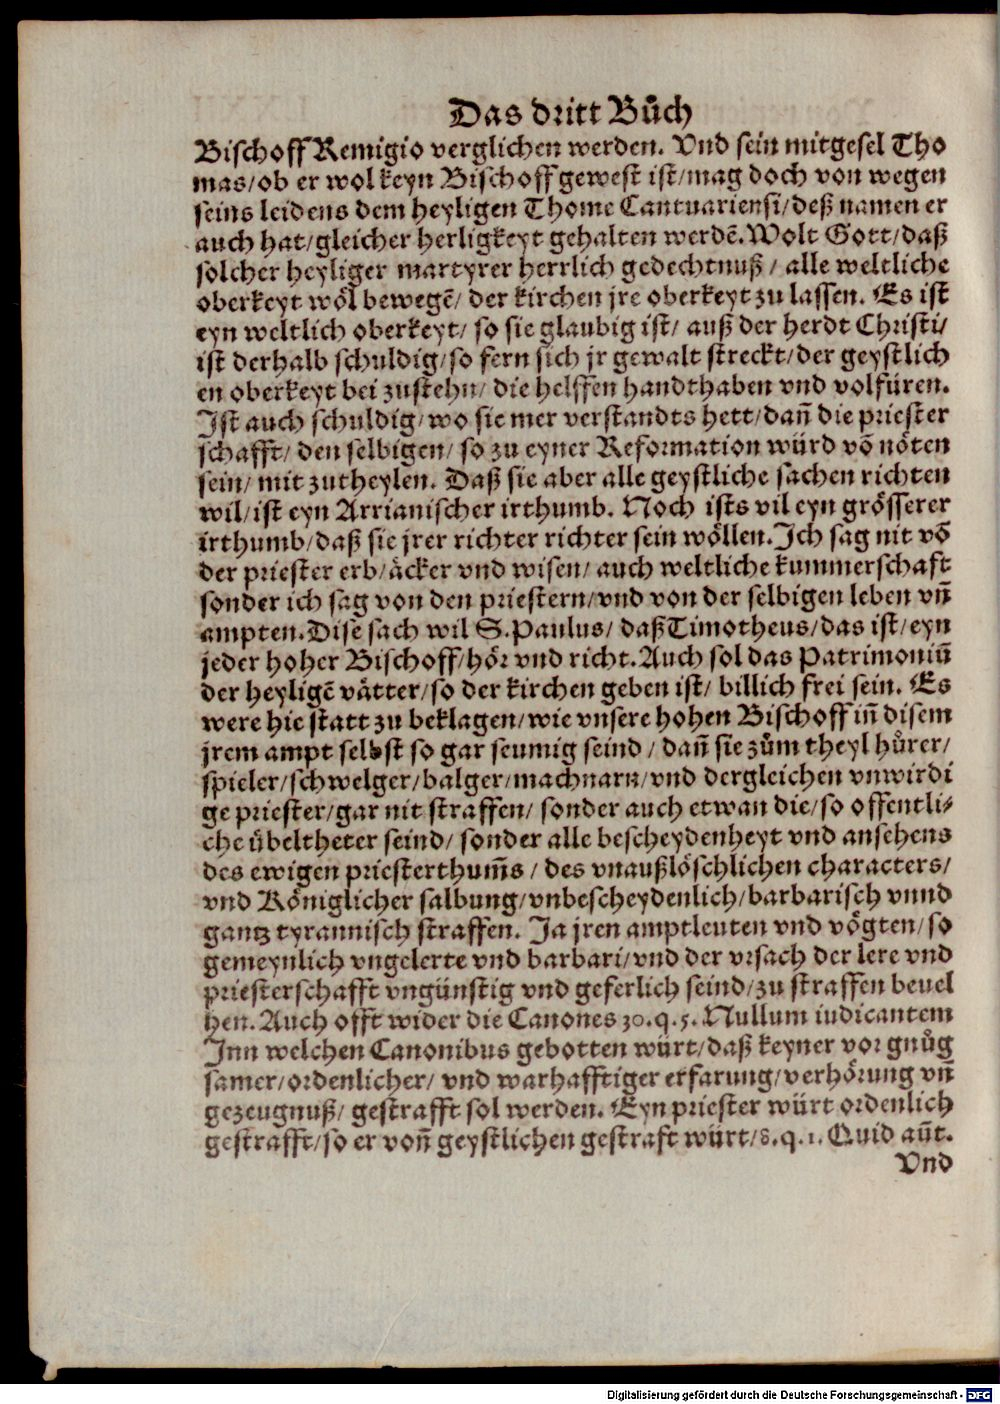 Das dritt Bůch
Bischoff Remigio verglichen werden. Vnd sein mitgesel Tho
mas/ob er wol keyn Bischoff gewest ist/mag doch von wegen
seins leidens dem heyligen Thome Cantuariensi/deß namen er
auch hat/gleicher herligkeyt gehalten werdē. Wolt Gott/daß
solcher heyliger martyrer herrlich gedechtnuß/ alle weltliche
oberkeyt wöl bewegē/ der kirchen jre oberkeyt zu lassen. Es ist
eyn weltlich oberkeyt/ so sie glaubig ist/ auß der herdt Christi/
ist derhalb schuldig/so fern sich jr gewalt streckt/der geystlich
en oberkeyt bei zustehn/ die helffen handthaben vnd volfüren.
Ist auch schuldig/wo sie mer verstandts hett/dañ die priester
schafft/ den selbigen/ so zu eyner Reformation würd vō nöten
sein/ mit zutheylen. Daß sie aber alle geystliche sachen richten
wil/ist eyn Arrianischer irthumb. Noch ists vil eyn grösserer
irthumb/daß sie jrer richter richter sein wöllen. Ich sag nit vō
der priester erb/äcker vnd wisen/ auch weltliche kummerschaft
sonder ich sag von den priestern/vnd von der selbigen leben vñ
ampten. Dise sach wil S. Paulus/ daß Timotheus/das ist/eyn
jeder hoher Bischoff/hör vnd richt. Auch sol das Patrimoniū
der heyligē vätter/so der kirchen geben ist/ billich frei sein. Es
were hie statt zu beklagen/wie vnsere hohen Bischoff iñ disem
jrem ampt selbst so gar seumig seind/ dañ sie zům theyl hůrer/
spieler/schwelger/balger/machnarn/vnd dergleichen vnwirdi
ge priester/gar nit straffen/ sonder auch etwan die/so offentli-
che übeltheter seind/ sonder alle bescheydenheyt vnd ansehens
des ewigen priesterthum̄s/ des vnaußlöschlichen characters/
vnd Königlicher salbung/vnbescheydenlich/barbarisch vnnd
gantz tyrannisch straffen. Ja jren amptleuten vnd vögten/so
gemeynlich vngelerte vnd barbari/vnd der vrsach der lere vnd
priesterschafft vngünstig vnd geferlich seind/zu straffen beuel
hen. Auch offt wider die Canones 30. q. 5. Nullum iudicantem
Inn welchen Canonibus gebotten würt/daß keyner vor gnůg
samer/ordenlicher/ vnd warhafftiger erfarung/verhörung vñ
gezeugnuß/ gestrafft sol werden. Eyn priester würt ordenlich
gestrafft/so er voñ geystlichen gestraft würt/8. q. 1. Quid aūt.
Vnd
Digitalisierung gefördert durch die Deutsche Forschungsgemeinschaft - DFG